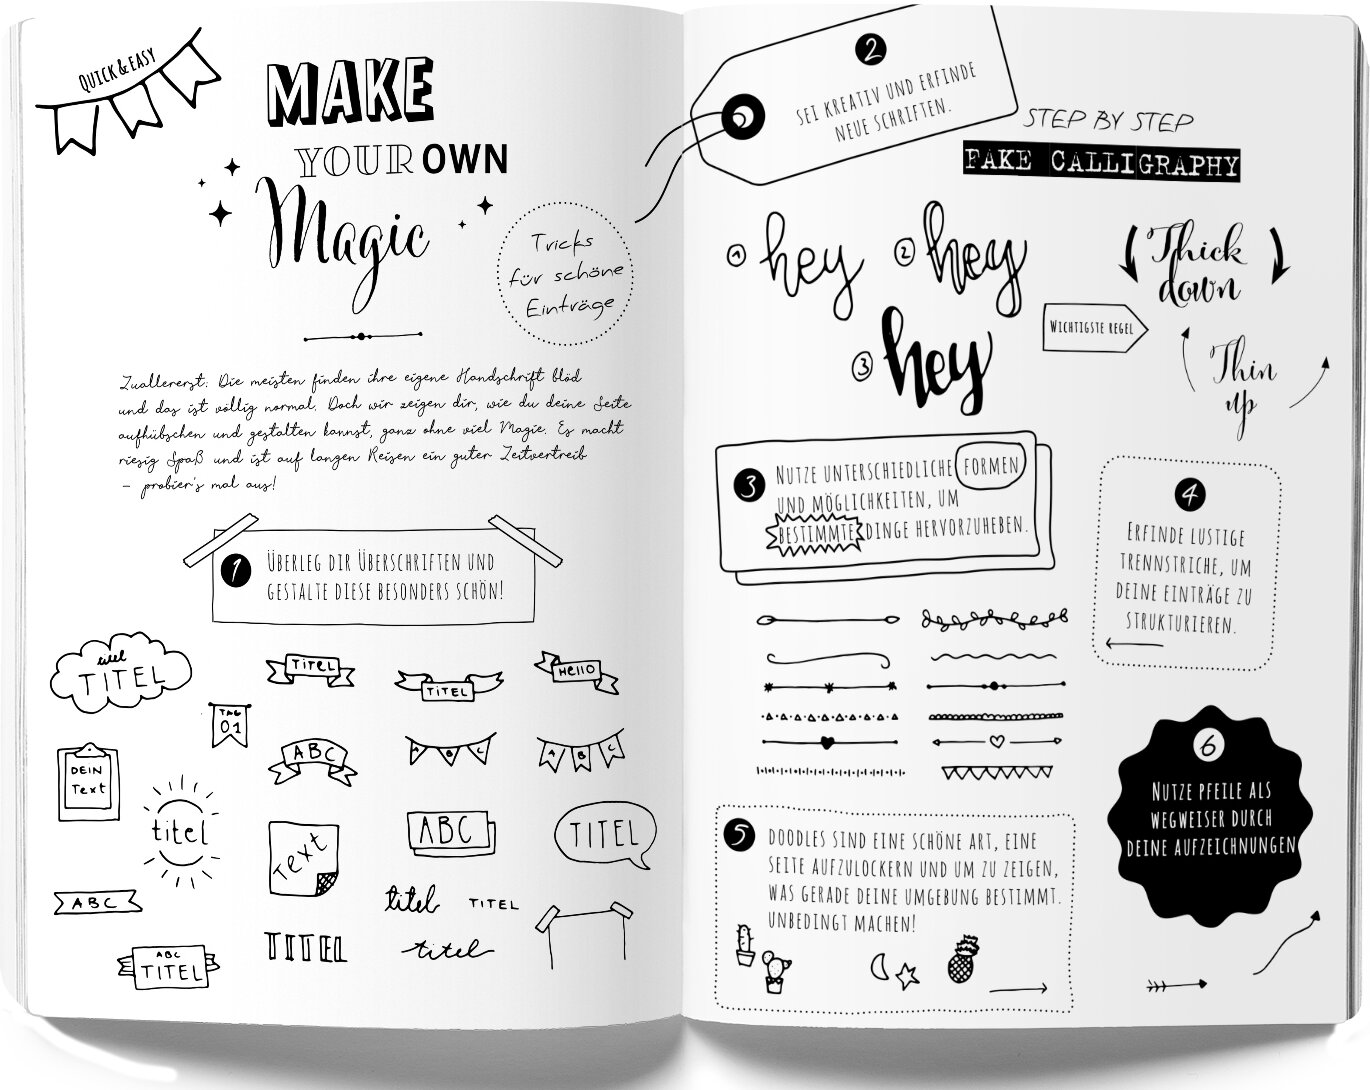 QUICK & EASY
MAKE
YOUR OWN
Magic
Tricks
für schöne
Einträge
Zuallererst: Die meisten finden ihre eigene Handschrift blöd
und das ist völlig normal. Doch wir zeigen dir, wie du deine Seite
aufhübschen und gestalten kannst, ganz ohne viel Magie. Es macht
riesig Spaß und ist auf langen Reisen ein guter Zeitvertreib
– probier's mal aus!
1
ÜBERLEG DIR ÜBERSCHRIFTEN UND
GESTALTE DIESE BESONDERS SCHÖN!
titel
TITEL
TITEL
TITEL
HEllO
TAG
01
ABC
A B C
A B C
DEIN
Text
titel
Text
ABC
TITEL
ABC
titel
TITEL
TITEL
titel
ABC
TITEL
2
SEI KREATIV UND ERFINDE
NEUE SCHRIFTEN.
STEP BY STEP
FAKE CALLIGRAPHY
1 hey
2 hey
3 hey
Thick
down
WICHTIGSTE REGEL
Thin
up
3
NUTZE UNTERSCHIEDLICHE FORMEN
UND MÖGLICHKEITEN, UM
BESTIMMTE DINGE HERVORZUHEBEN.
4
ERFINDE LUSTIGE
TRENNSTRICHE, UM
DEINE EINTRÄGE ZU
STRUKTURIEREN.
5
DOODLES SIND EINE SCHÖNE ART, EINE
SEITE AUFZULOCKERN UND UM ZU ZEIGEN,
WAS GERADE DEINE UMGEBUNG BESTIMMT.
UNBEDINGT MACHEN!
6
NUTZE PFEILE ALS
WEGWEISER DURCH
DEINE AUFZEICHNUNGEN